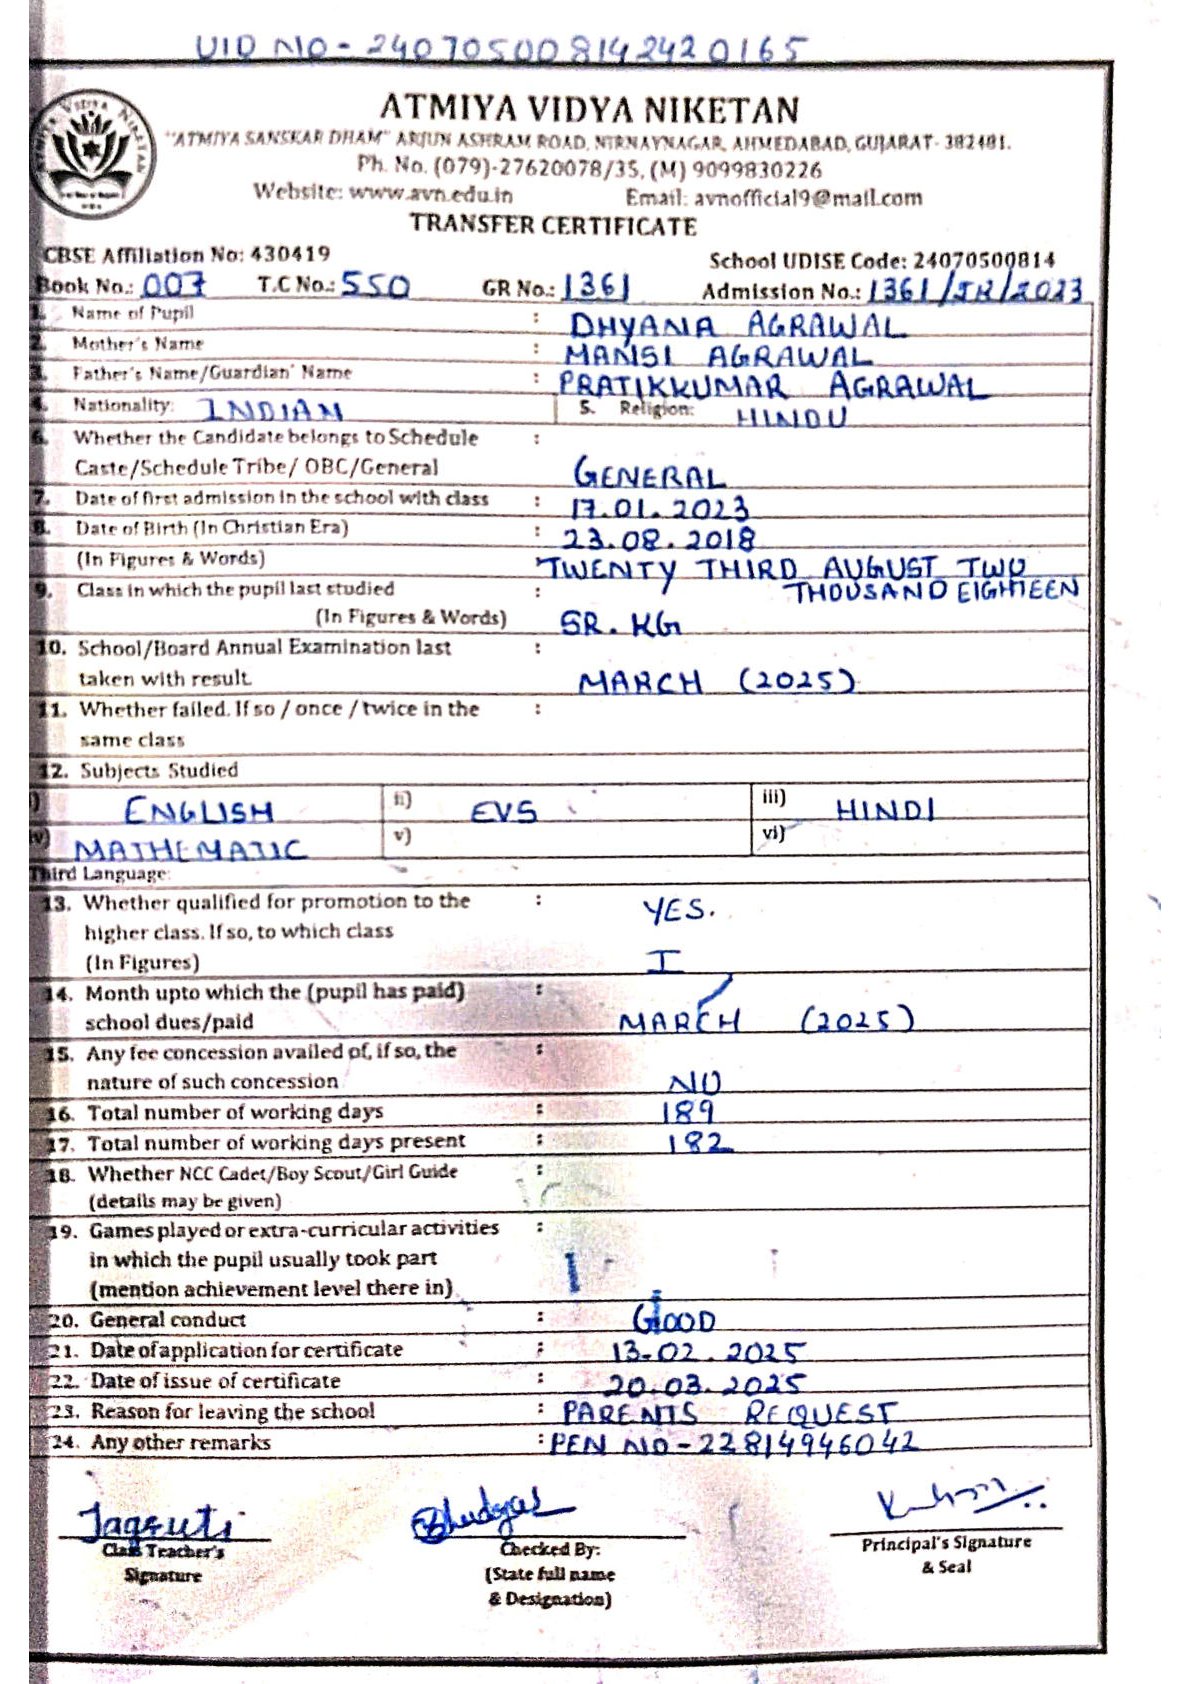 UID NO - 240705008142420165
ATMIYA VIDYA NIKETAN
"ATMIYA SANSKAR DHAM" ARJUN ASHRAM ROAD, NIRNAYNAGAR, AHMEDABAD, GUJARAT- 382481.
Ph. No. (079)-27620078/35, (M) 9099830226
Website: www.avn.edu.in Email: avnofficial9@mail.com
TRANSFER CERTIFICATE
CBSE Affiliation No: 430419 School UDISE Code: 24070500814
Book No.: 007 T.C No.: 550 GR No.: 1361 Admission No.: 1361/SR/2023
1. Name of Pupil : DHYANA AGRAWAL
2. Mother's Name : MANSI AGRAWAL
3. Father's Name/Guardian' Name : PRATIKKUMAR AGRAWAL
4. Nationality: INDIAN 5. Religion: HINDU
6. Whether the Candidate belongs to Schedule :
Caste/Schedule Tribe/ OBC/General GENERAL
7. Date of first admission in the school with class : 17.01.2023
8. Date of Birth (In Christian Era) : 23.08.2018
(In Figures & Words) TWENTY THIRD AUGUST TWO
9. Class in which the pupil last studied : THOUSAND EIGHTEEN
(In Figures & Words) SR. KG
10. School/Board Annual Examination last :
taken with result MARCH (2025)
11. Whether failed. If so / once / twice in the :
same class
12. Subjects Studied
i) ENGLISH ii) EVS iii) HINDI
iv) MATHEMATIC v) vi)
Third Language:
13. Whether qualified for promotion to the : YES.
higher class. If so, to which class
(In Figures) I
14. Month upto which the (pupil has paid) :
school dues/paid MARCH (2025)
15. Any fee concession availed of, if so, the :
nature of such concession NO
16. Total number of working days : 189
17. Total number of working days present : 182
18. Whether NCC Cadet/Boy Scout/Girl Guide :
(details may be given)
19. Games played or extra-curricular activities :
in which the pupil usually took part
(mention achievement level there in)
20. General conduct : GOOD
21. Date of application for certificate : 13-02.2025
22. Date of issue of certificate : 20.03.2025
23. Reason for leaving the school : PARENTS REQUEST
24. Any other remarks : PEN NO - 22814946042
Jagruti
Class Teacher's Checked By: Principal's Signature
Signature (State full name & Seal
& Designation)